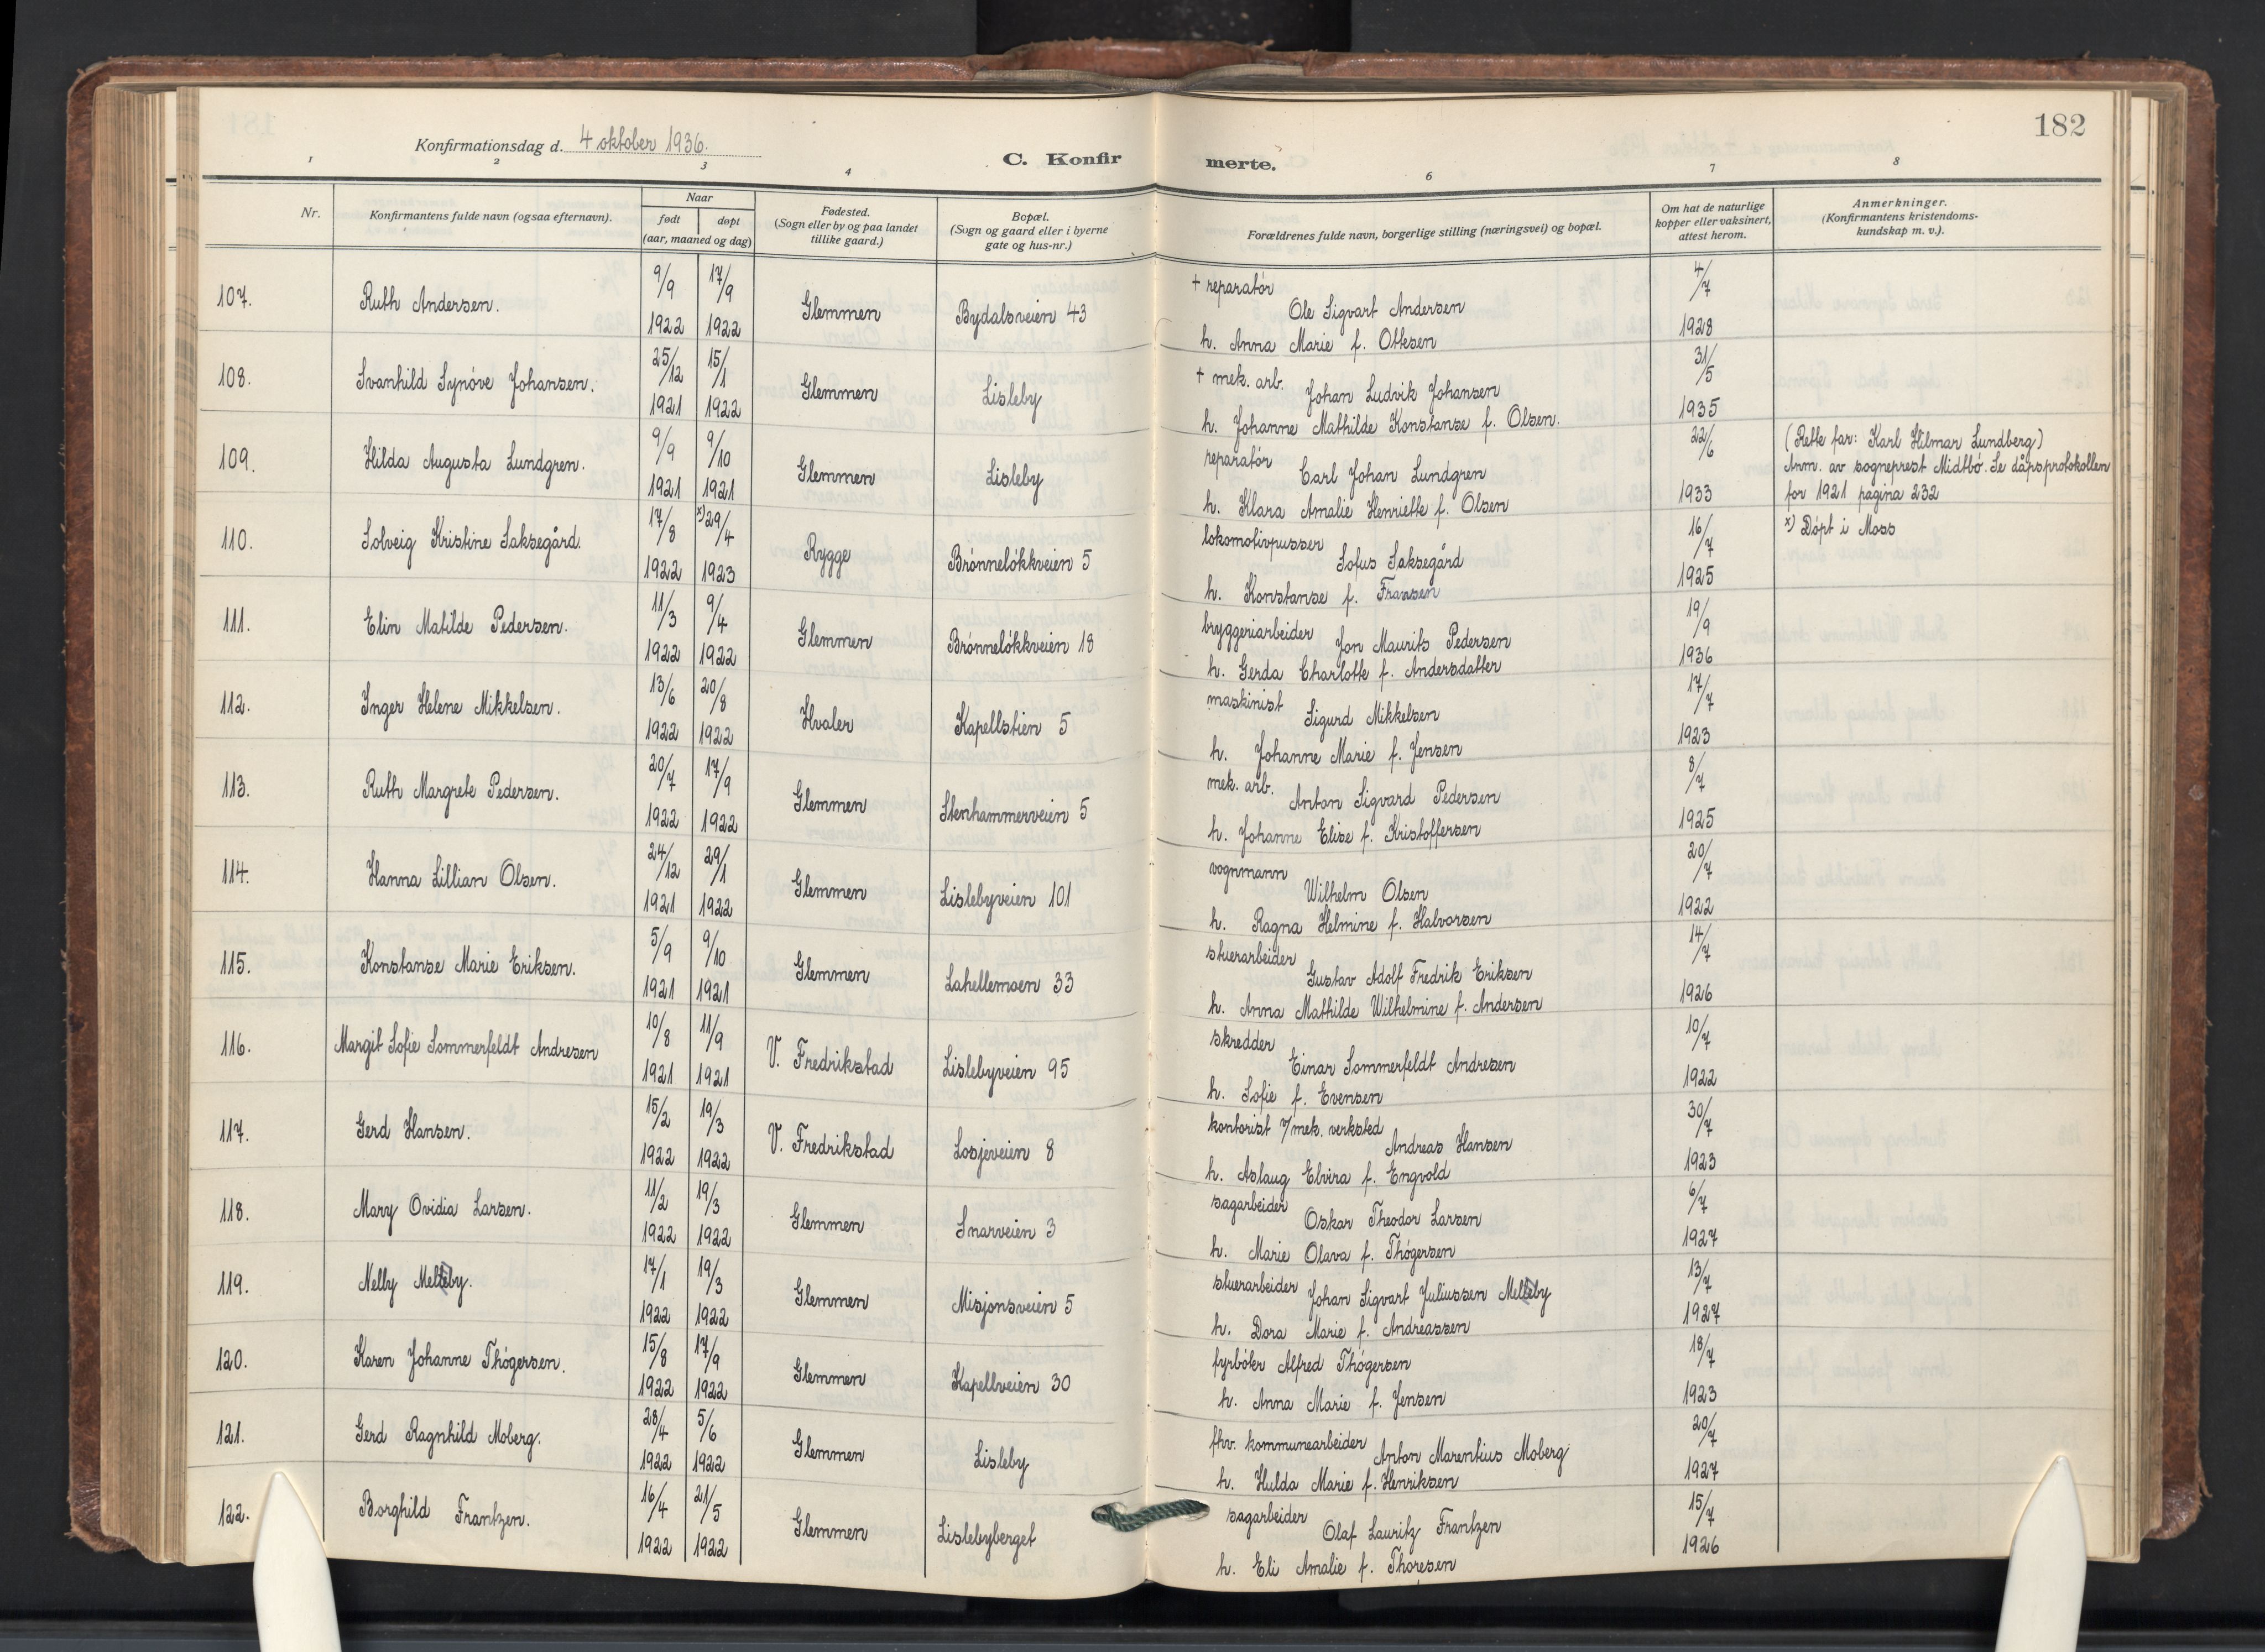 182
Konfirmationsdag d. 4 oktober 1936.
C. Konfirmerte.
1 2 3 4 6 7 8
Nr.
Konfirmantens fulde navn (ogsaa efternavn).
Naar
født døpt
(aar, maaned og dag)
Fødested.
(Sogn eller by og paa landet
tillike gaard.)
Bopæl.
(Sogn og gaard eller i byerne
gate og hus-nr.)
Forældrenes fulde navn, borgerlige stilling (næringsvei) og bopæl.
Om hat de naturlige
kopper eller vaksinert,
attest herom.
Anmerkninger.
(Konfirmantens kristendoms-
kundskap m. v.).
107. Ruth Andersen. 9/9 1922 17/9 1922 Glemmen Bydalsveien 43
+ reparatör
Ole Sigvart Andersen
h. Anna Marie f. Ottesen
4/7 1928
108. Svanhild Synöve Johansen. 25/12 1921 15/1 1922 Glemmen Lisleby
+ mek. arb.
Johan Ludvik Johansen
h. Johanne Mathilde Konstanse f. Olsen.
31/5 1935
109. Hilda Augusta Lundgren. 9/9 1921 9/10 1921 Glemmen Lisleby
reparatör
Carl Johan Lundgren
h. Klara Amalie Henriette f. Olsen
22/6 1933
(Rette far: Karl Hilmar Lundberg)
Anm. av sogneprest Midtbö. Se dåpsprotokollen
for 1921 pagina 232
110. Solveig Kristine Saksegård. 17/8 1922 x) 29/4 1923 Rygge Brönnelökkveien 5
lokomotivpusser
Sofus Saksegård
h. Konstanse f. Fransen
16/7 1925
x) Döpt i Moss
111. Elin Matilde Pedersen. 11/3 1922 9/4 1922 Glemmen Brönnelökkveien 18
bryggeriarbeider
Jon Maurits Pedersen
h. Gerda Charlotte f. Andersdatter
19/9 1936
112. Inger Helene Mikkelsen. 13/6 1922 20/8 1922 Hvaler Kapellstien 5
maskinist
Sigurd Mikkelsen
h. Johanne Marie f. Jensen
17/7 1923
113. Ruth Margrete Pedersen. 20/7 1922 17/9 1922 Glemmen Stenhammerveien 5
mek. arb.
Anton Sigvard Pedersen
h. Johanne Elise f. Kristoffersen
8/7 1925
114. Hanna Lillian Olsen. 24/12 1921 29/1 1922 Glemmen Lislebyveien 101
vognmann
Wilhelm Olsen
h. Ragna Helmine f. Halvorsen
20/7 1922
115. Konstanse Marie Eriksen. 5/9 1921 9/10 1921 Glemmen Lahellemoen 33
stuerarbeider
Gustav Adolf Fredrik Eriksen
h. Anna Mathilde Wilhelmine f. Andersen
14/7 1926
116. Margit Sofie Sommerfeldt Andresen 10/8 1921 11/9 1921 V. Fredrikstad Lislebyveien 95
skredder
Einar Sommerfeldt Andresen
h. Sofie f. Evensen
10/7 1922
117. Gerd Hansen. 15/2 1922 19/3 1922 V. Fredrikstad Losjeveien 8
kontorist v/mek. verksted
Andreas Hansen
h. Aslaug Elvira f. Engvold
30/7 1923
118. Mary Ovidia Larsen. 11/2 1922 19/3 1922 Glemmen Snarveien 3
sagarbeider
Oskar Theodor Larsen
h. Marie Olava f. Thögersen
6/7 1927
119. Nelly 17/1 1922 19/3 1922 Glemmen Misjonsveien 5
stuerarbeider Johan Sigvart Juliussen
h. Dora Marie f. Andreassen
13/7 1927
120. Karen Johanne Thögersen. 15/8 1922 17/9 1922 Glemmen Kapellveien 30
fyrböter Alfred Thögersen
h. Anna Marie f. Jensen
18/7 1923
121. Gerd Ragnhild Moberg. 28/4 1922 5/6 1922 Glemmen Lisleby
fhv. kommunearbeider
Anton Marentius Moberg
h. Hulda Marie f. Henriksen
20/7 1927
122. Borghild Frantzen. 16/4 1922 21/5 1922 Glemmen Lislebyberget
sagarbeider
Olaf Lauritz Frantzen
h. Eli Amalie f. Thoresen
15/7 1926